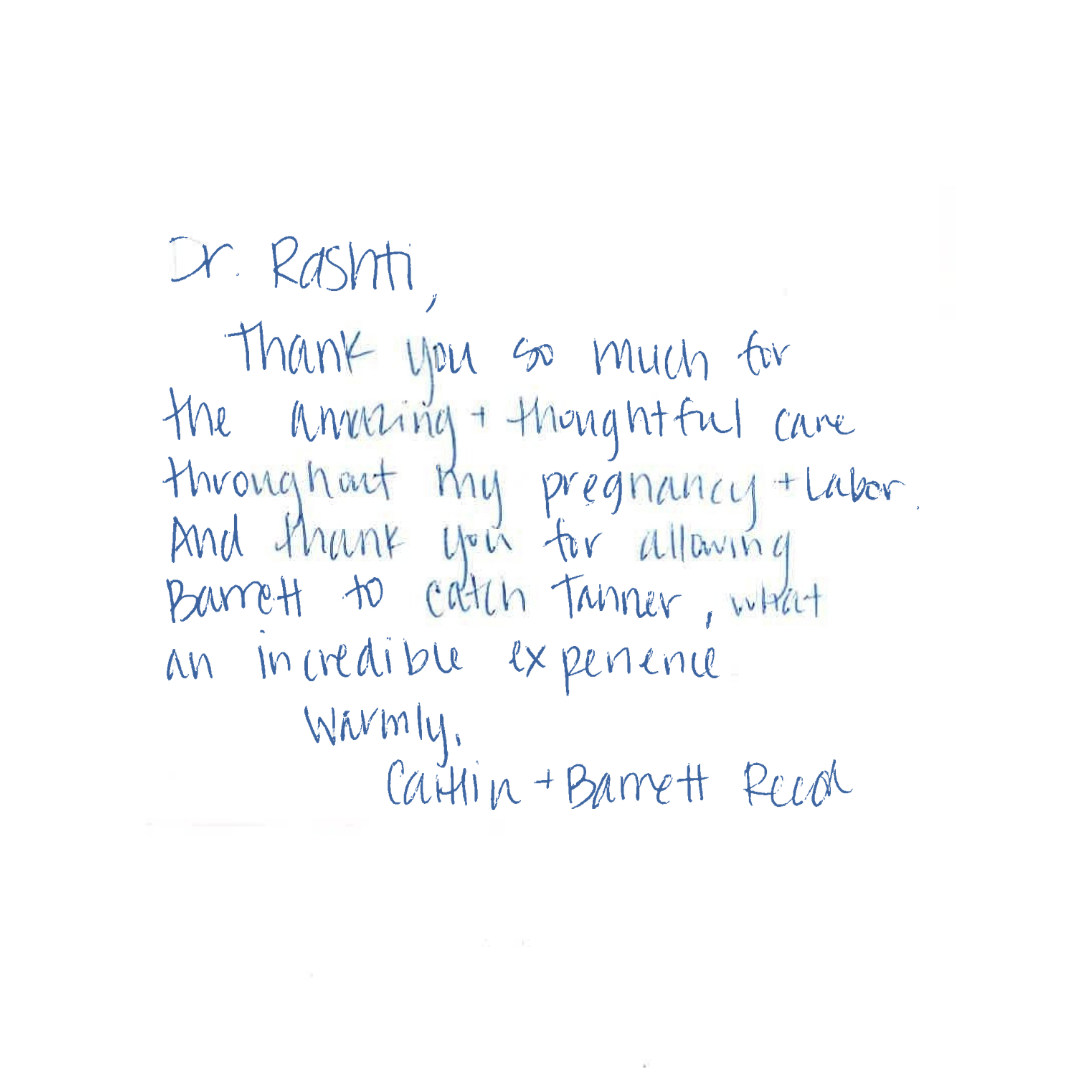 Dr. Rashti,
Thank you so much for
the amazing + thoughtful care
throughout my pregnancy + Labor.
And thank you for allowing
Barrett to catch Tanner, what
an incredible experience
Warmly,
Caitlin + Barrett Reed